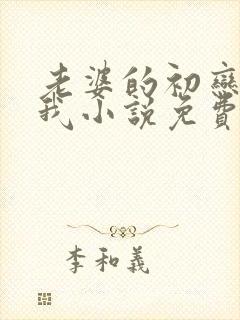 老婆的初戀
我小說免費
李和義